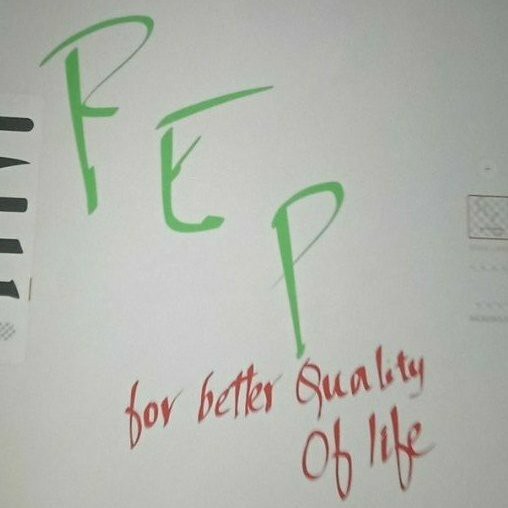 PEP
for better Quality
Of life